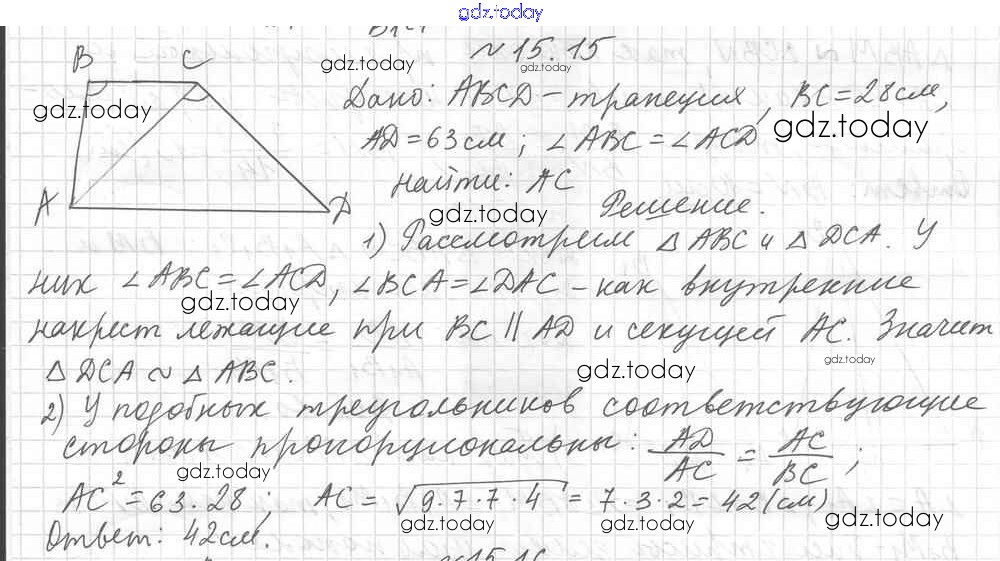 gdz.today
№ 15.15
B C gdz.today
Дано: ABCD – трапеция, BC = 28 см,
gdz.today
AD = 63 см; ∠ABC = ∠ACD gdz.today
Найти: AC
A D gdz.today Решение.
1) Рассмотрим △ ABC и △ DCA. У
них ∠ABC = ∠ACD, ∠BCA = ∠DAC – как внутренние
gdz.today
накрест лежащие при BC || AD и секущей AC. Значит
gdz.today gdz.today
△ DCA ~ △ ABC.
2) У подобных треугольников соответствующие
стороны пропорциональны: AD/AC = AC/BC;
gdz.today
AC² = 63·28; AC = √9·7·7·4 = 7·3·2 = 42 (см)
gdz.today gdz.today gdz.today
Ответ: 42 см.